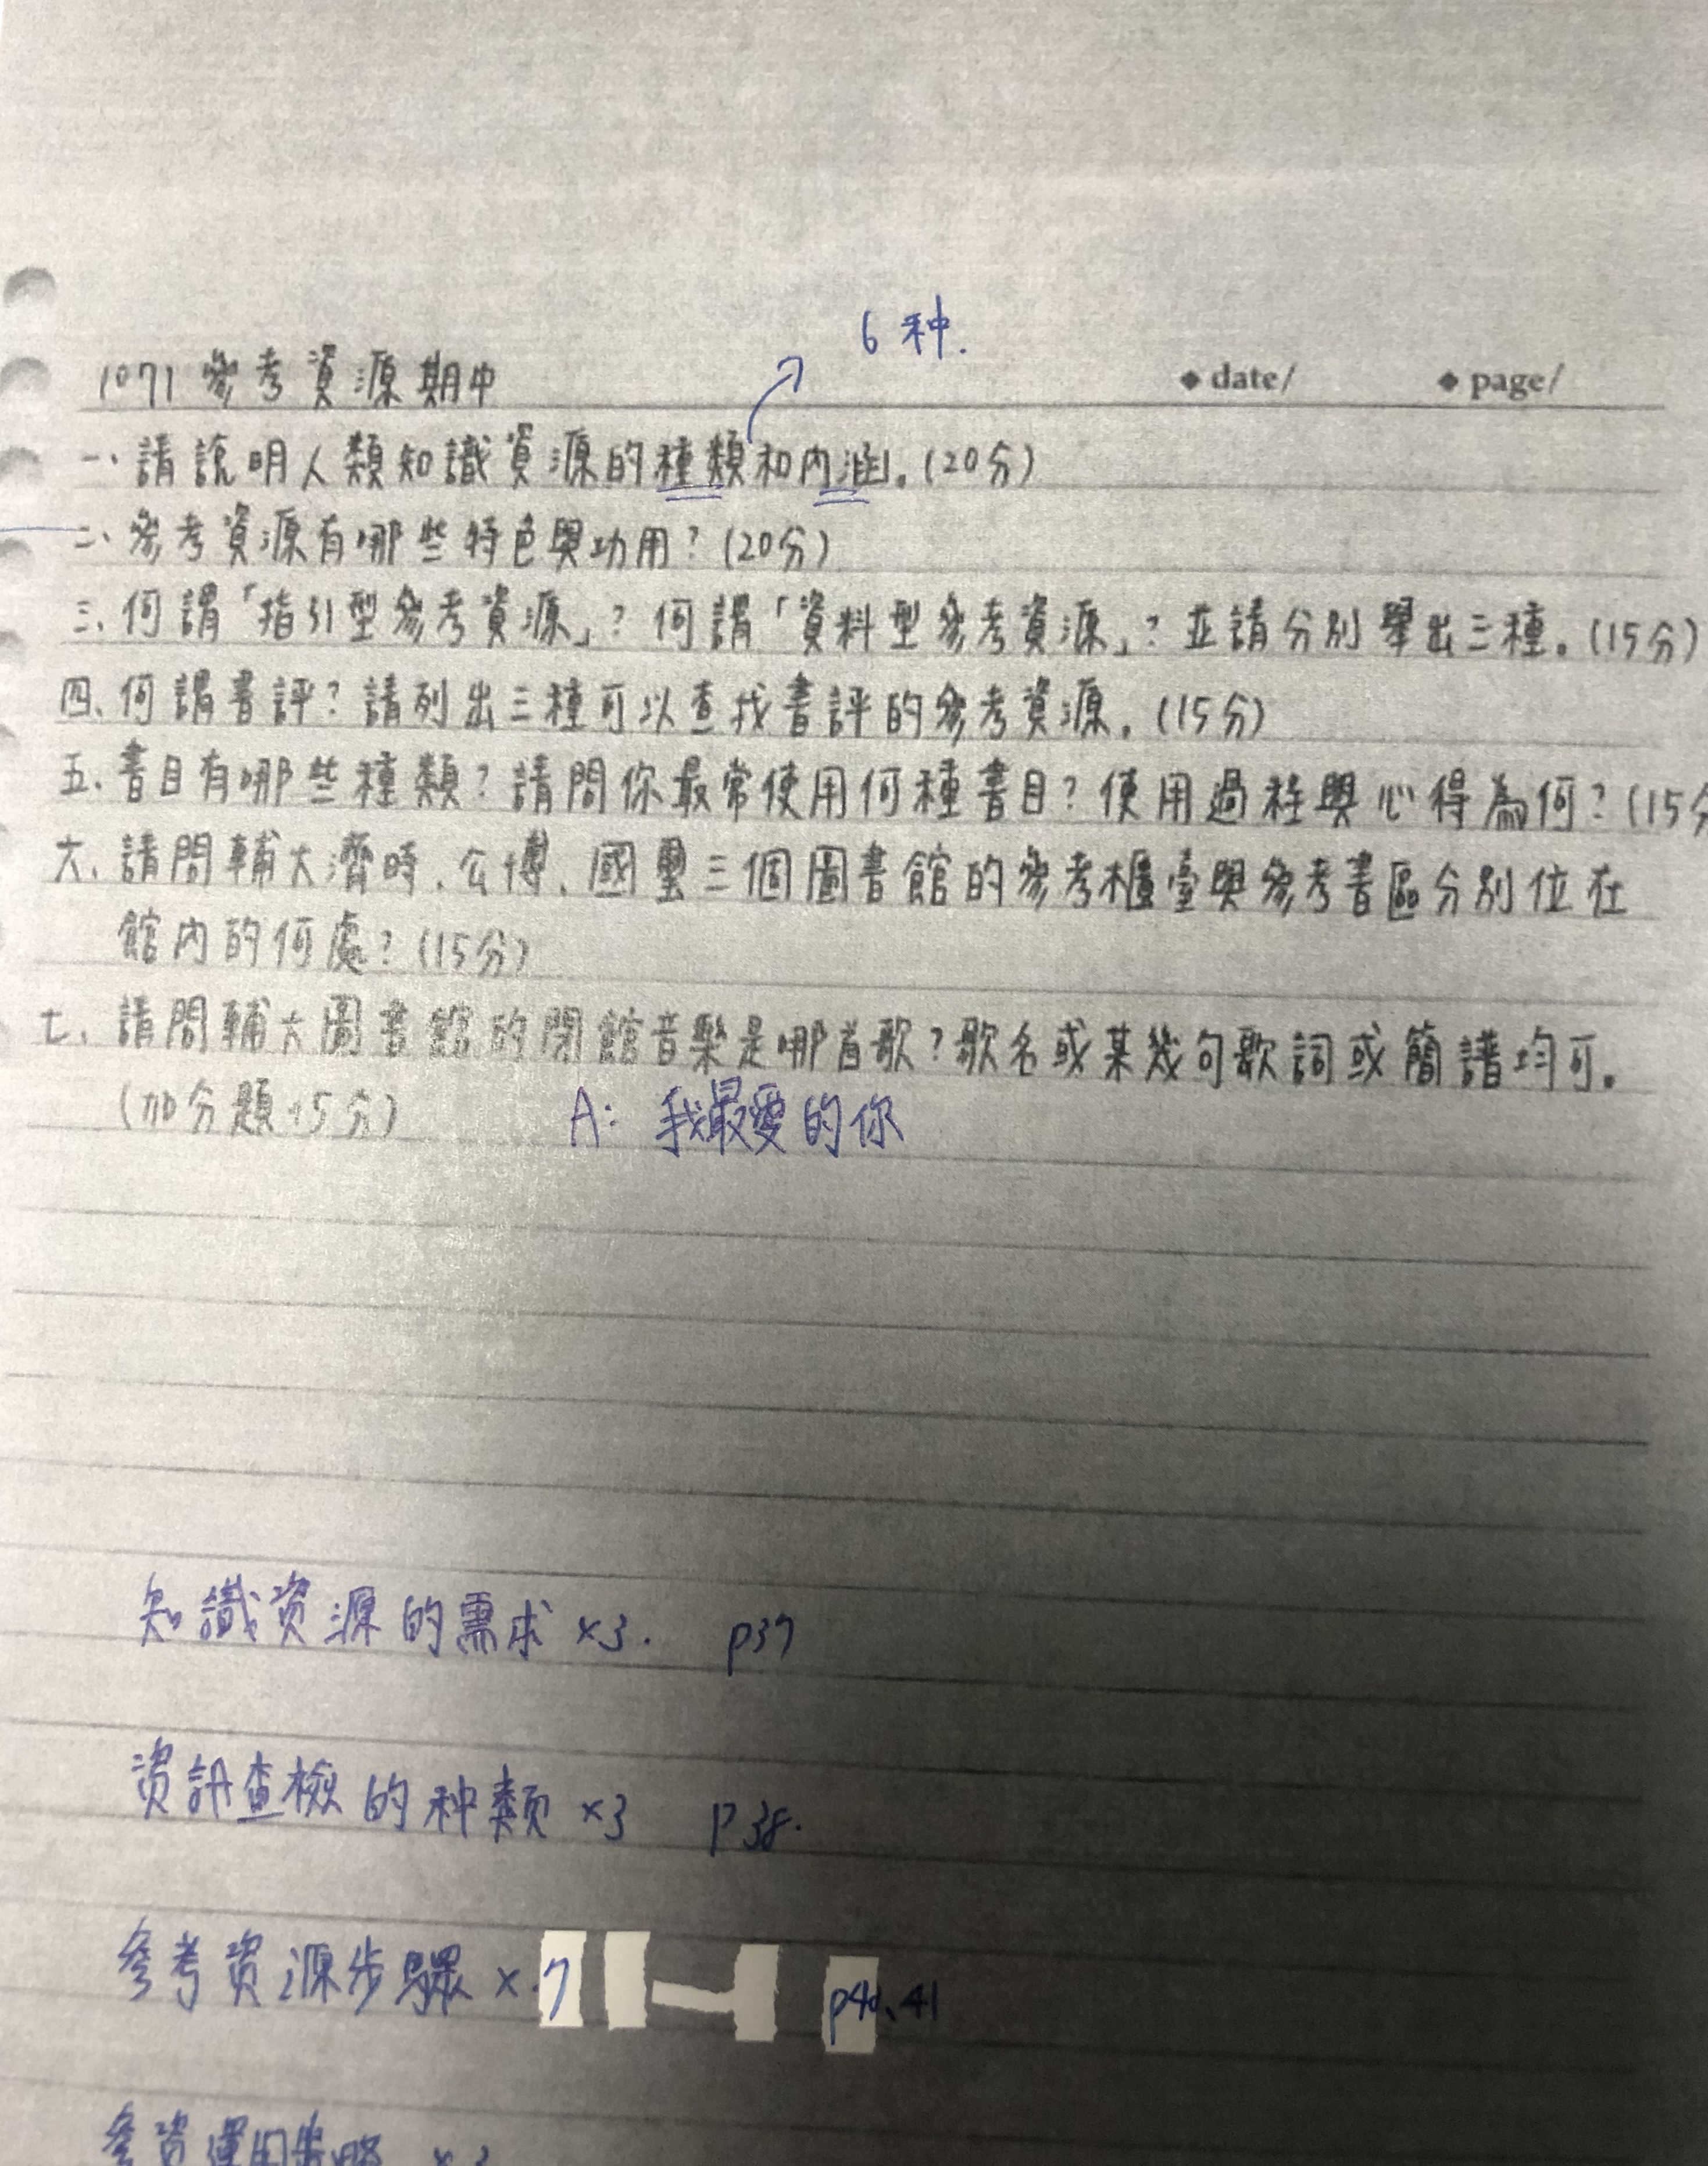 6 种.
1071 參考資源期中 ◆ date/ ◆ page/
一、請說明人類知識資源的種類和內涵。(20分)
二、參考資源有哪些特色與功用?(20分)
三、何謂「指引型參考資源」?何謂「資料型參考資源」?並請分別舉出三種。(15分)
四、何謂書評?請列出三種可以查找書評的參考資源。(15分)
五、書目有哪些種類?請問你最常使用何種書目?使用過程與心得為何?(15分
六、請問輔大濟時、公博、國璽三個圖書館的參考櫃臺與參考書區分別位在
館內的何處?(15分)
七、請問輔大圖書館的閉館音樂是哪首歌?歌名或某幾句歌詞或簡譜均可。
(加分題+5分) A: 我最愛的你
知識資源的需求 ×3. p37
資訊查檢的种類 ×3 p38.
參考資源步驟 ×.7 p40、41
參資運用策略 ×3